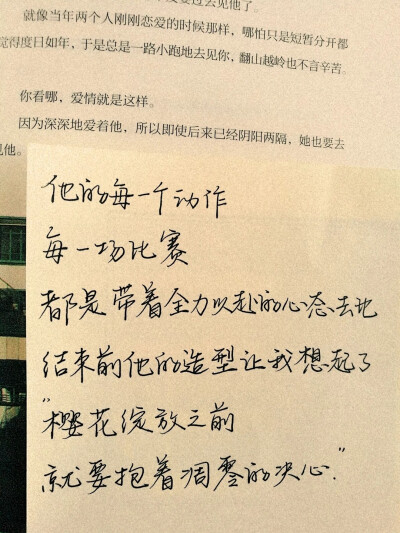 要过去见他了
就像当年两个人刚刚恋爱的时候那样，哪怕只是短暂分开都
觉得度日如年，于是总是一路小跑地去见你，翻山越岭也不言辛苦。
你看哪，爱情就是这样。
因为深深地爱着他，所以即使后来已经阴阳两隔，她也要去
见他。
他的每一个动作
每一场比赛
都是带着全力以赴的心态去比
结束前他的造型让我想起了
“樱花绽放之前
就要抱着凋零的决心”